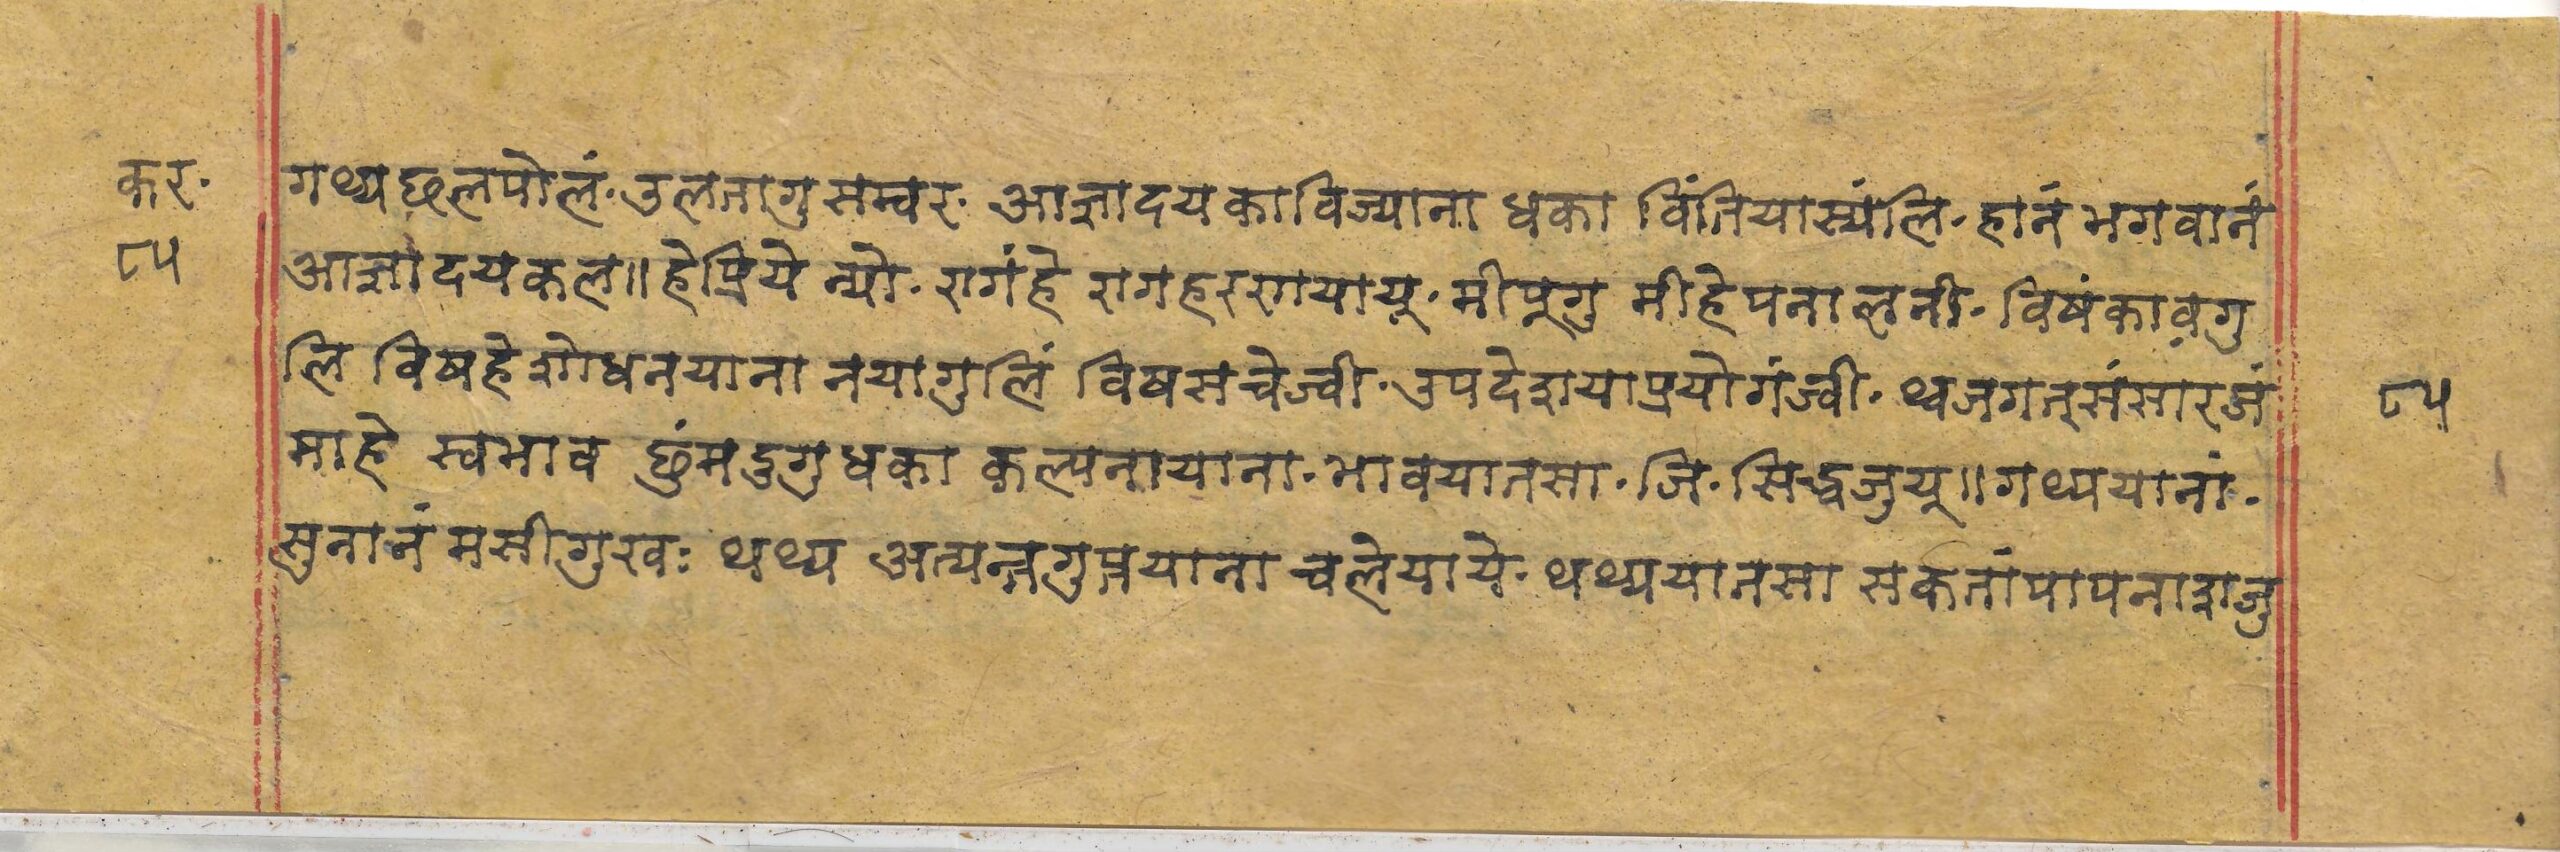 कर· गथ्यछलपोलं·उलजागुसम्वर· आज्ञादयकाविज्याना धका विंतियास्यंलि·हानं भगवानं
८५ आज्ञादयकल॥हेप्रिये न्यो· रागंहे रागहररगयायू·मीपूगु मीहेपनालनी·विषंकावगु
लि विषहे शोधनयाना नयागुलिं विषसचेज्वी·उपदेशयाप्रयोगंज्वी·थ्वजगत्संसारजं ८५
माहे स्वभाव छुंमदुगुधका कल्पनायाना·भावयातसा·जि·सिद्धजुयू॥गथ्ययानां·
सुनानं मसीगुरवः थथ्य अत्यन्तगुप्तयाना चलेयाये·थथ्ययातसा सर्कतांपापनाशजु